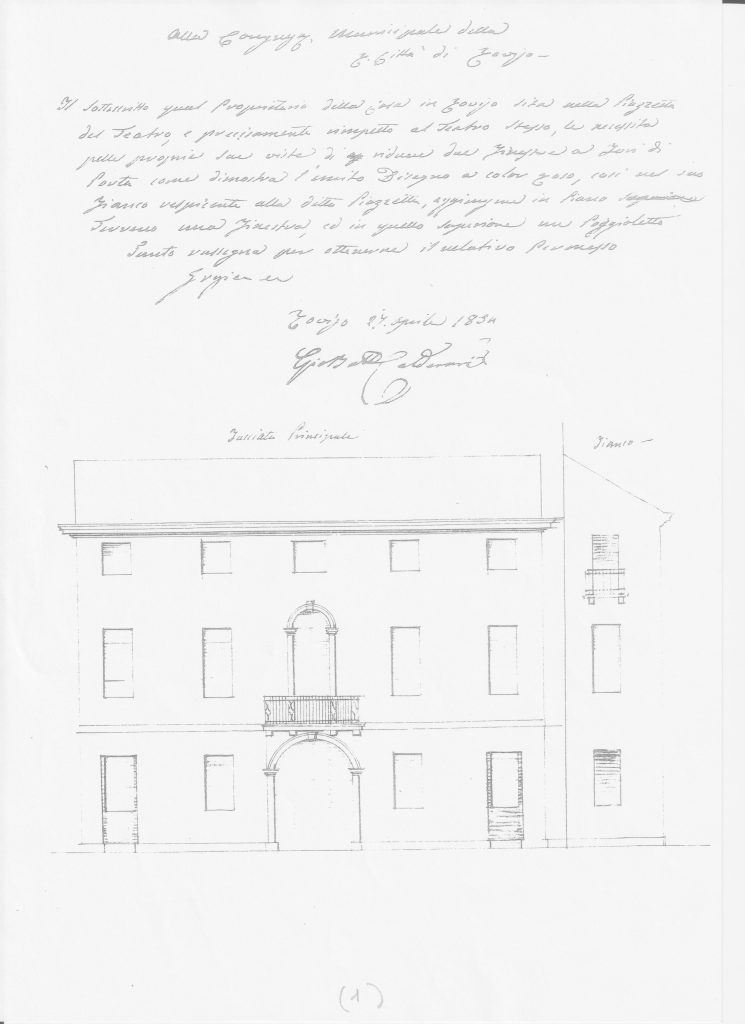 Alla Congreg. Municipale della
R. Città di Rovigo -
Il Sottoscritto qual Proprietario della Casa in Rovigo sita nella Piazzetta
del Teatro, e precisamente rimpetto al Teatro stesso, le necessita
pelle proprie sue viste di ridurre due Finestre a Fori di
Porta come dimostra l'unito Disegno a color roso, così nel suo
Fianco respiciente alla detta Piazzetta, aggiungere in Piano
Terreno una Finestra, ed in quello superiore un Poggioletto
Tanto rassegna per ottenerne il relativo Permesso
Rovigo 27. Aprile 1834
Facciata Principale
Fianco -
(1)